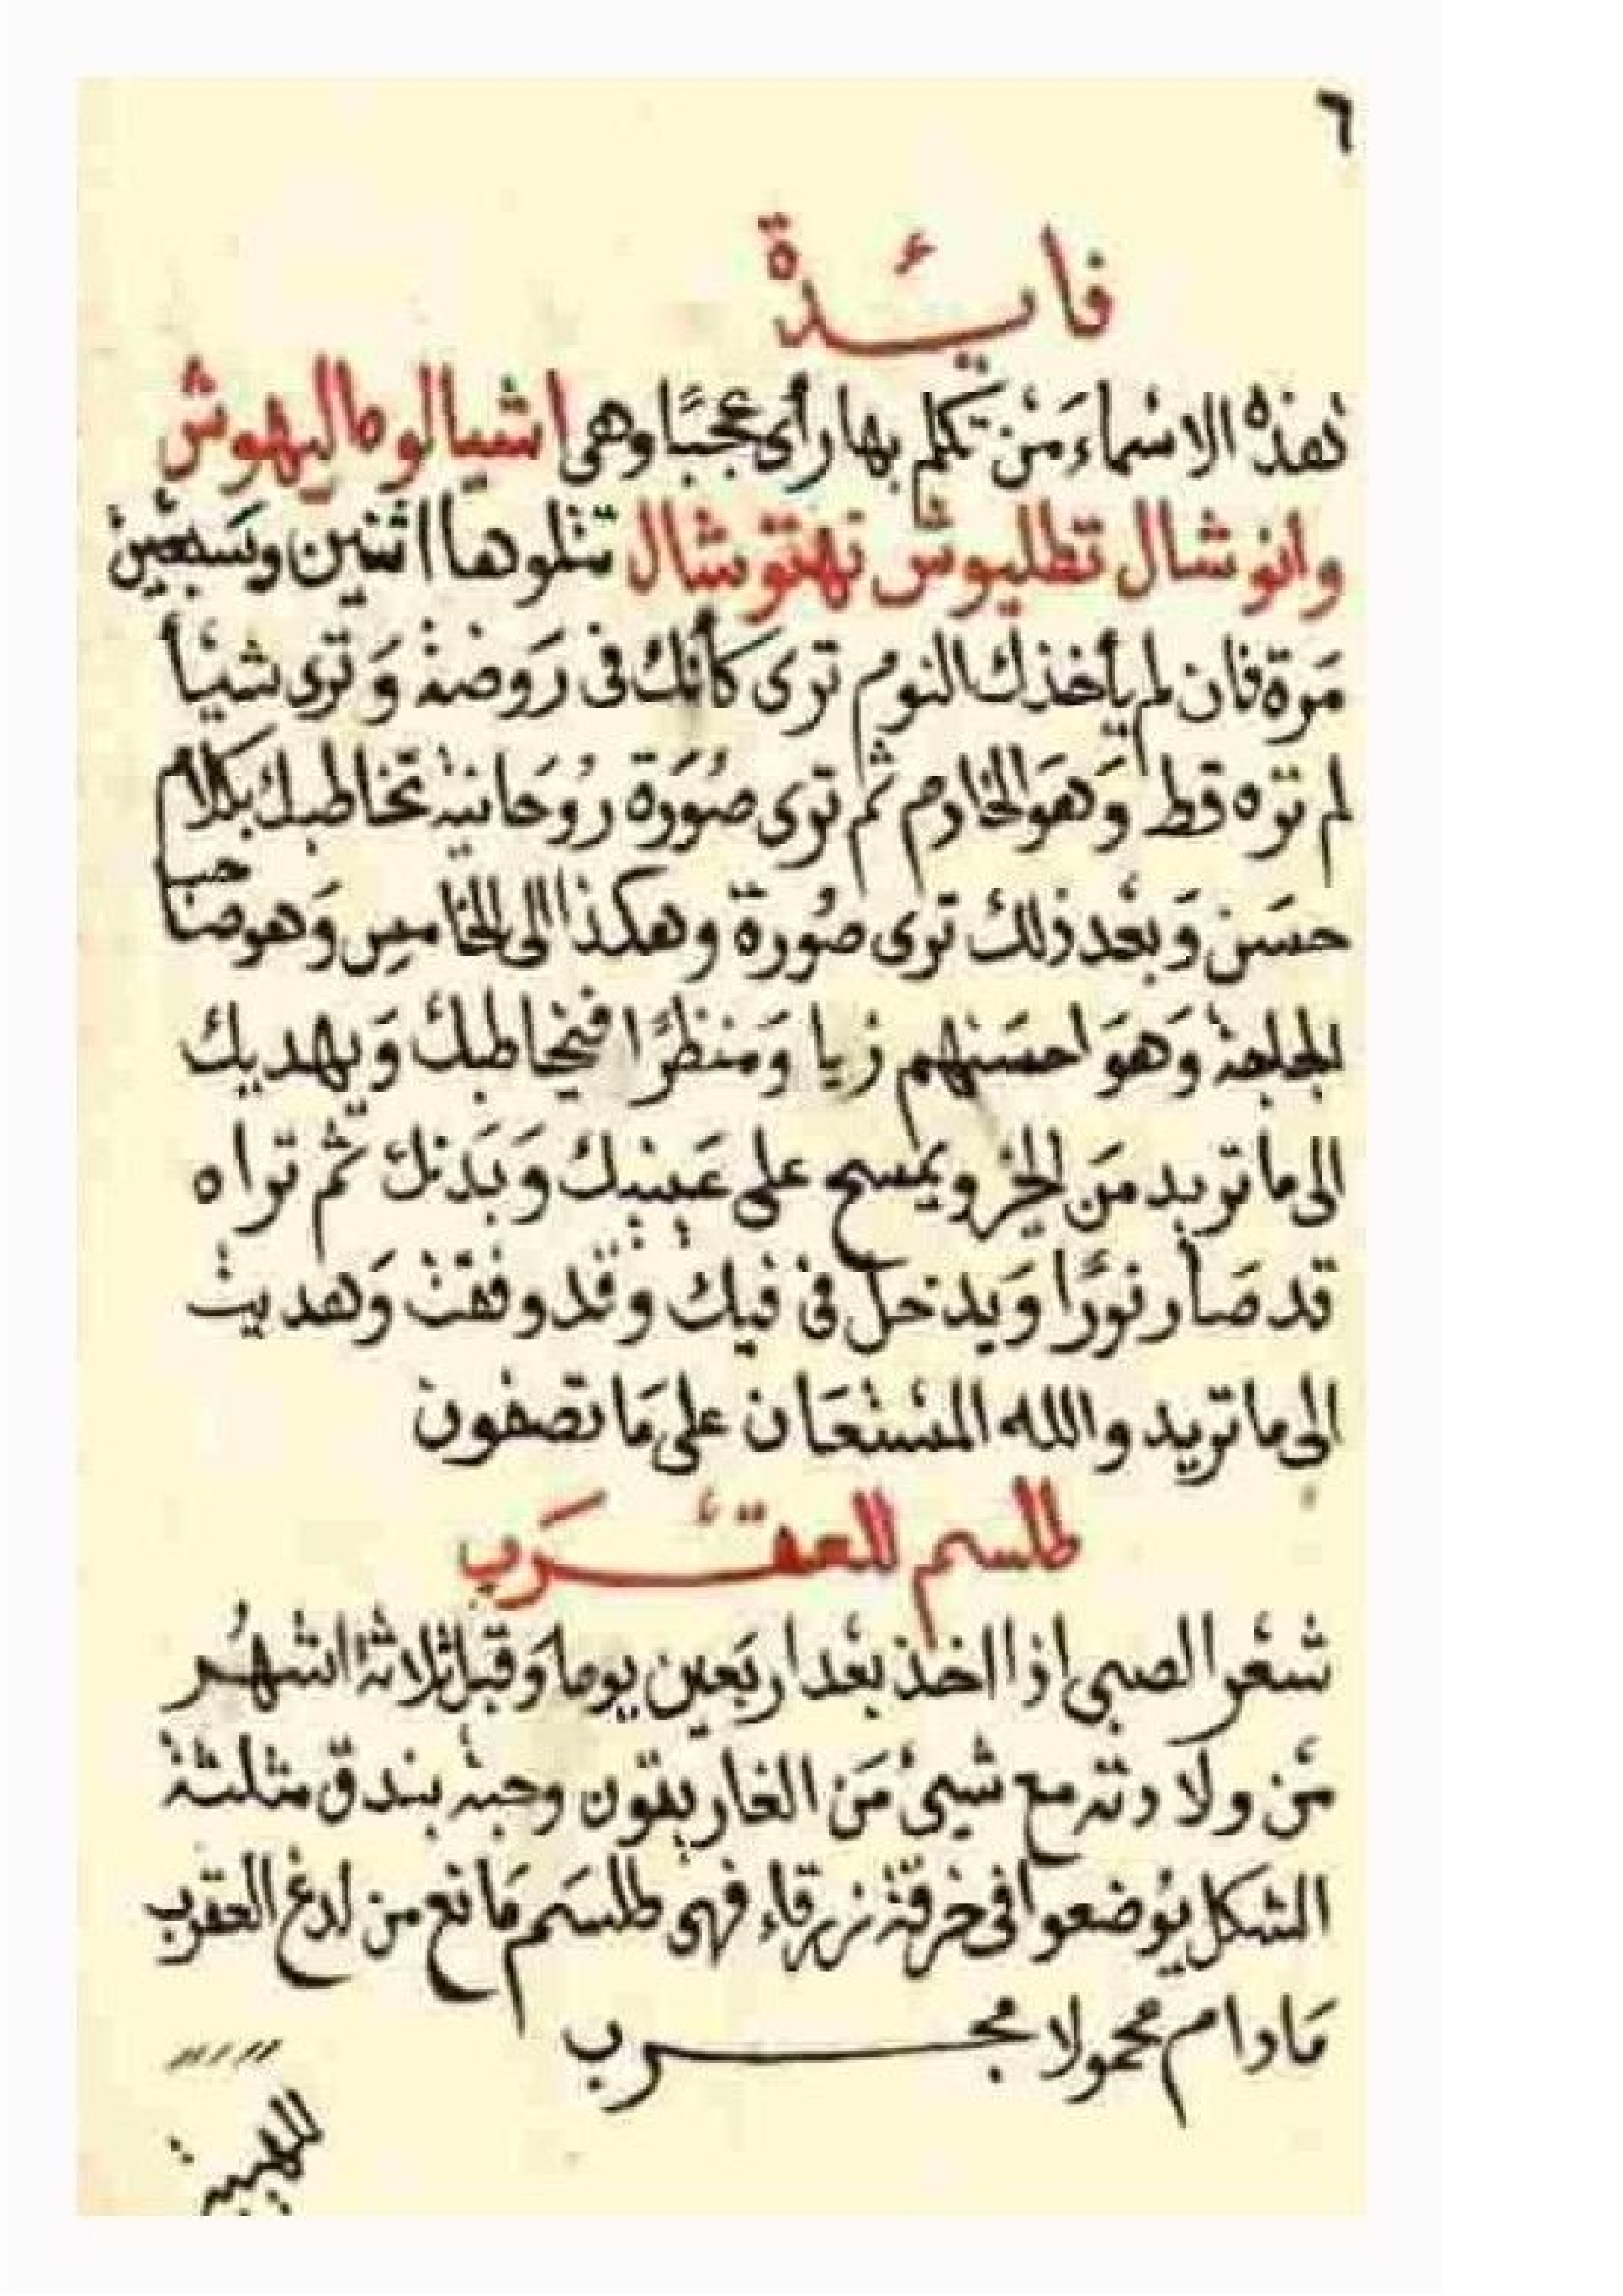 ٦
فائدة
نهذه الاسْماء مَنْ تكلم بها رأى عجبًا وهي اشيالوطاليهوش
وانوشال تطليوش نهتوشال تتلوها اثنين وسَبعين
مَرة فان لم يأخذك النوم ترى كأنك فى رَوضة وَترى شيأ
لم تره قط وَهوَ الخادم ثم ترى صُورَة رُوحَانية تخاطبك بكلام
حسَن وَبعْد ذلك ترى صُورة وهكذا الى الخامس وَهو صاحب
الجلجلة وَهوَ احسَنهم زيا وَمنظرًا فيخاطبك وَيهديك
الى ما تريد مَن الخير ويمسح على عَينيك وَبَدنك ثم تراه
قد صَار نورًا وَيدخل فى فيك وقد وفقت وَهديت
الى ما تريد والله المسْتعَان على مَا تصفون
طلسم للعقْرَب
شعْر الصبى اذا اخذ بعْد اربَعين يوما وَقبل ثلاثة اشهُر
مْن ولادته مع شيئ مَن الغاريقون وحبة بندق مثلثة
الشكل يوضعوا فى خرقة زرقاء فهى طلسَم مَانع من لدغ العقرب
مَادام محمولا مجرب